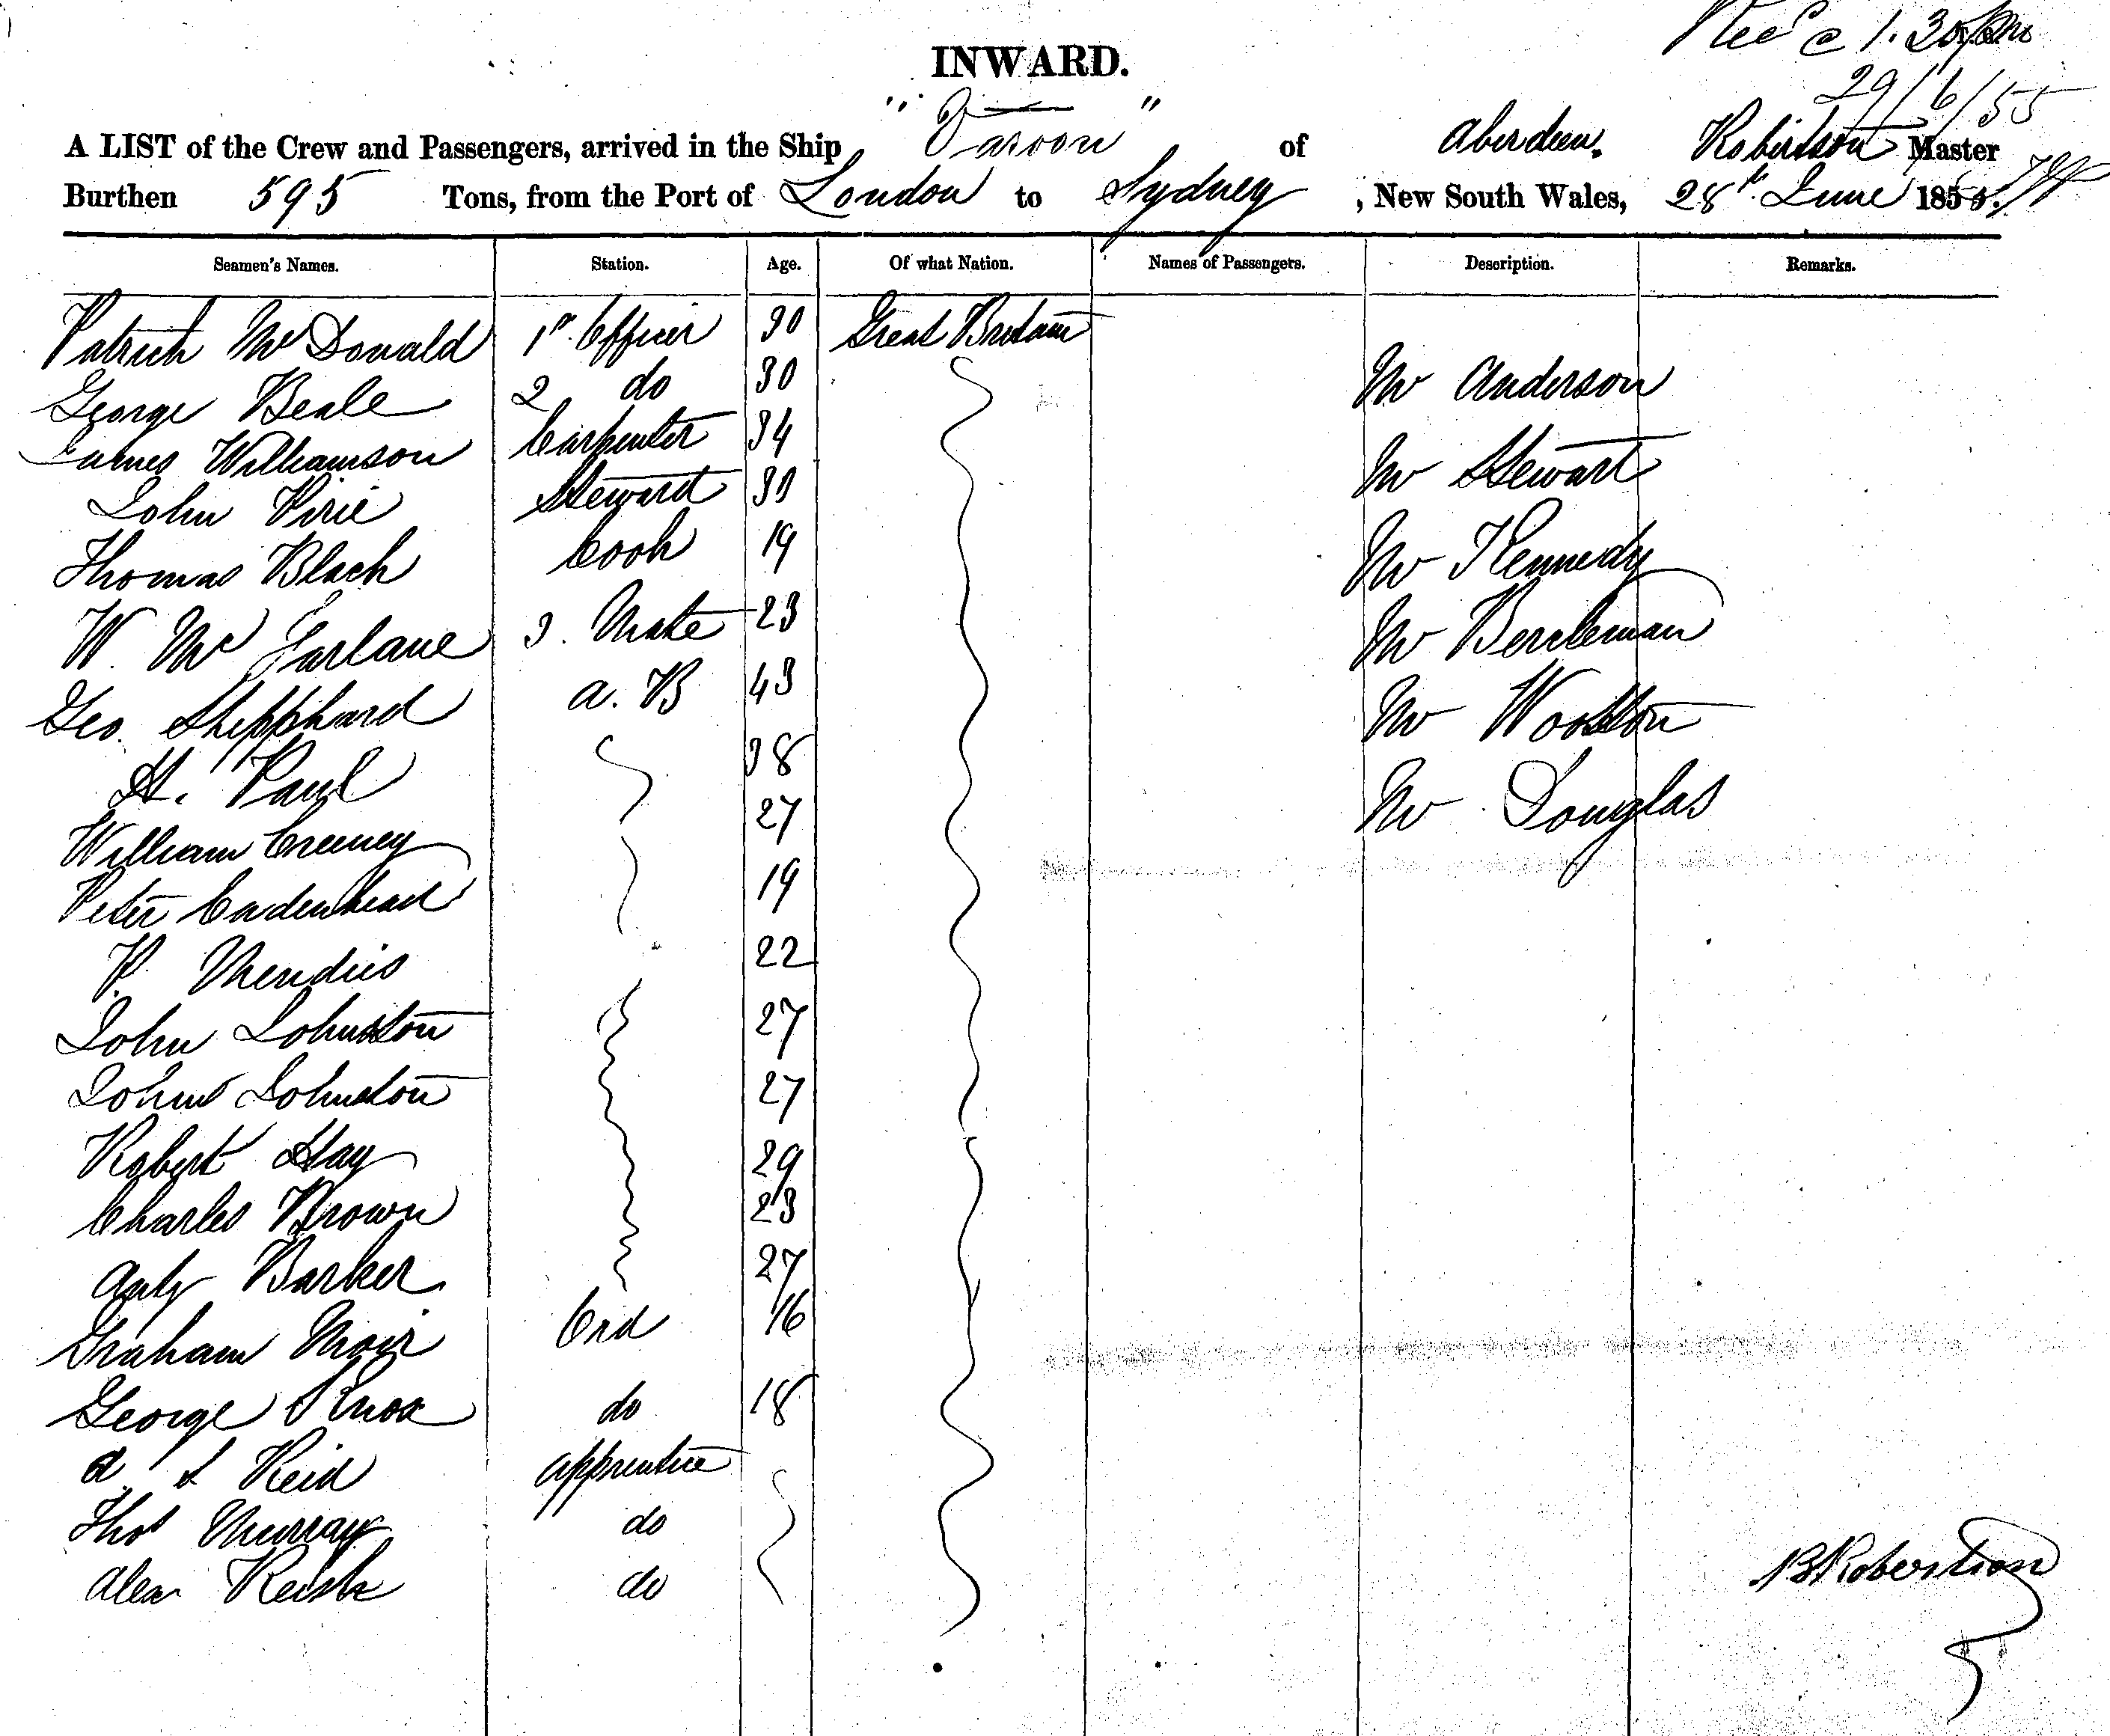 Recd @ 1.30 pm
29/6/55
INWARD.
A LIST of the Crew and Passengers, arrived in the Ship " " of Aberdeen. Robertson Master
Burthen 595 Tons, from the Port of London to Sydney, New South Wales, 28th June 1855.
Seamen's Names. Station. Age. Of what Nation. Names of Passengers. Description. Remarks.
Patrick McDonald 1st Officer 30 Great Britain
George Beale 2 do 30 Mr Anderson
James Williamson Carpenter 34
John Pirie Steward Mr Stewart
Thomas Black Cook 19 Mr Kennedy
W. McFarlane 3. Mate 23 Mr
Geo. Shepphard A. B 43 Mr
H. Paul 38 Mr Douglas
William 27
Peter Cadenhead 19
P. 22
John Johnston 27
John Johnston 27
Robert Hay 29
Charles Brown 23
Anty Barker 27
Graham Moir Ord 16
George Knox do 18
A. Reid apprentice
Thos Murray do
Alex do
Robertson